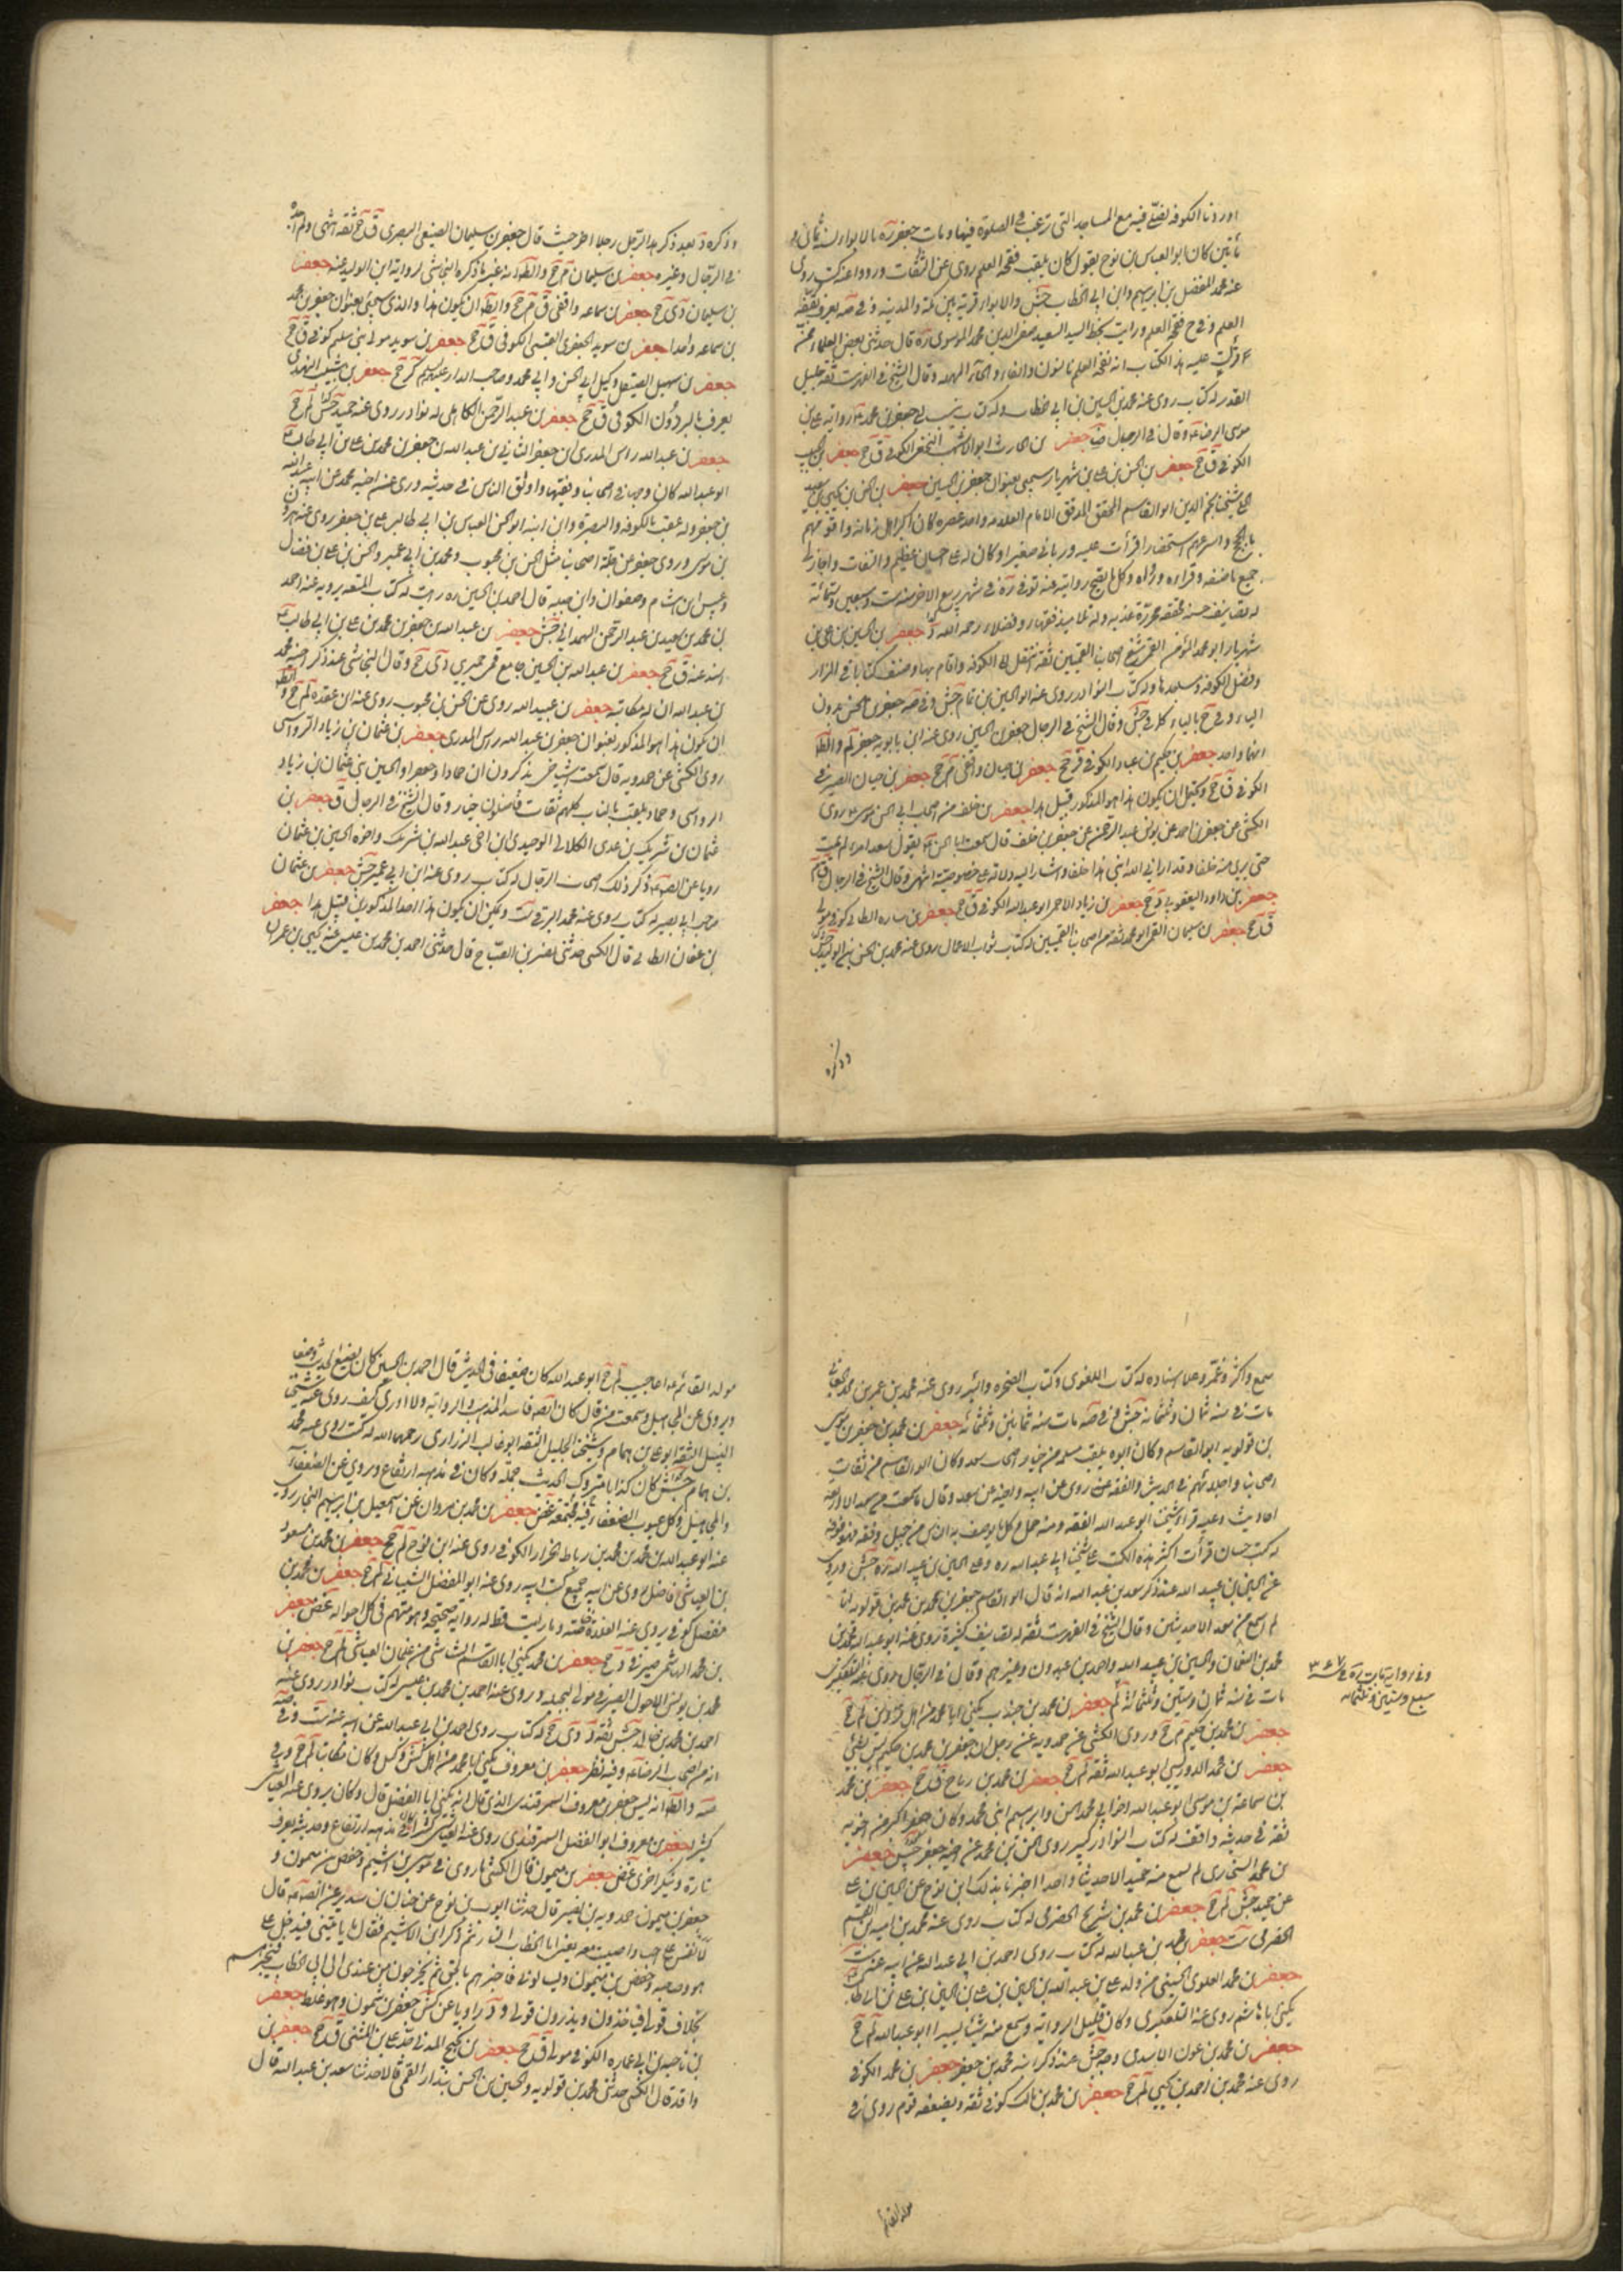 اوردنا الكوفة نصلى فيه مع المساجد التى ترغب فى الصلوة فيها ومات جعفر ره بالابواء سنة ثمانى و
مأتين كان ابو العباس بن نوح يقول كان يلقب فقحة العلم روى عن الثقات ورووا عنه كتب روى
عنه محمد المفضل بن ابرهيم وابن ابى الخطاب جش والابواء قرية بين مكة والمدينة وفى صه يعرف بقفة
العلم وفى ح فقحة العلم ورايت بخط السيد السعيد صفى الدين محمد الموسوى ره قال حدثنى بعض العلماء
قرأت عليه هذا الكتاب انه نفحة العلم بالنون والفاء والحاء المهملة وقال الشيخ فى الفهرست ثقة جليل
القدر له كتاب روى عنه محمد بن الحسين بن ابى خطاب وله كتاب ينسب الى جعفر بن محمد ع رواية على بن
موسى الرضا ع وقال فى الرجال ضا جعفر بن الحارث ابو الاشهب النخعى الكوفى ق جخ جعفر بن
الكوفى ق جخ جعفر بن الحسن بن على بن شهريار سيجئ بعنوان جعفر بن الحسين جعفر بن الحسن بن يحيى بن سعيد
الحلى شيخنا نجم الدين ابو القاسم المحقق المدقق الامام العلامة واحد عصره كان السن اهل زمانه واقومهم
بالحجة واسرعهم استحضارا قرأت عليه وربانى صغيرا وكان له على احسان عظيم والتفات واجاز لى
جميع ما صنفه وقراءه ورواه وكل ما يصح روايته عنه توفى ره فى شهر ربيع الاخر سنة ست وسبعين وستمائة
له تصانيف حسنة محققة محررة عذبة وله تلاميذ فقهاء وفضلاء رحمه الله د جعفر بن الحسين بن على بن
شهريار ابو محمد المؤمن القمى شيخ اصحابنا القميين ثقة انتقل الى الكوفة واقام بها وصنف كتابا فى المزار
وفضل الكوفة ومساجدها وله كتاب النوادر روى عنه ابو الحسين بن تمام جش وفى صه جعفر بن الحسن بدون
الياء وفى ح بالياء كما فى جش وقال الشيخ فى الرجال جعفر بن الحسين روى عنه ابن بابويه جعفر لم والظا
انهما واحد جعفر بن حكيم بن عباد الكوفى ق جخ جعفر بن حيان واقفى م جخ جعفر بن حيان الصيرفى
الكوفى ق جخ ويحتمل ان يكون هذا هو المذكور قبيل هذا جعفر بن خلف من اصحاب ابى الحسن موسى ع روى
الكشى عن جعفر بن احمد عن يونس بن عبد الرحمن عن جعفر بن خلف قال سمعت ابا الحسن ع يقول سعد امرء لم يمت
حتى يرى منه خلفا وقد ارانى الله ابنى هذا خلفا واشار اليه دلالة على خصوصيته انتهى وقال الشيخ فى الرجال ق م
جعفر بن داود اليعقوبى ج جخ جعفر بن زياد الاحمر ابو عبد الله الكوفى ق جخ جعفر بن ساره الطائى كوفى مولى
ق جخ جعفر بن سليمان القمى ابو محمد ثقة من اصحابنا القميين له كتاب ثواب الاعمال روى عنه محمد بن الحسن بن الوليد جش
وذكره
وذكره د بعد ذكر هذا الرجل رجلا اخر حيث قال جعفر بن سليمان الضبعى البصرى ق جخ ثقة انتهى ولم اجده
فى الرجال وغيره جعفر بن سليمان م جخ والظا انه غير ما ذكره النجاشى لرواية ابن الوليد عنه جعفر
بن سليمان دى جخ جعفر بن سماعه واقفى ق م جخ والظا ان يكون هذا والذى سيجئ بعنوان جعفر بن محمد
بن سماعه واحدا جعفر بن سويد الجعفرى القيسى الكوفى ق جخ جعفر بن سويد مولى بنى سليم كوفى ق جخ
جعفر بن سهيل الصيقل وكيل ابى الحسن وابى محمد وصاحب الدار عليهم السلم كر جخ جعفر بن شبيب النهدى
يعرف بالبرذون الكوفى ق جخ جعفر بن عبد الرحمن الكاهلى له نوادر روى عنه حميد جش لم جخ
جعفر بن عبد الله راس المدرى ابن جعفر الثانى بن عبد الله بن جعفر بن محمد بن على بن ابى طالب ع
ابو عبد الله كان وجها فى اصحابنا وفقيها واوثق الناس فى حديثه وروى عن اخيه محمد عن ابيه عبد الله
بن جعفر وله عقب بالكوفة والبصرة وابن ابنه ابو الحسن العباس بن ابى طالب على بن جعفر يروى عنه هرون
بن موسى وروى جعفر عن جلة اصحابنا مثل الحسن بن محبوب ومحمد بن ابى عمير والحسن بن على بن فضال
وعبيس ابن هشام وصفوان وابن جبلة قال احمد بن الحسين ره رايت له كتاب المتعة يرويه عنه احمد
بن محمد بن سعيد بن عبد الرحمن الهمدانى جش جعفر بن عبد الله بن جعفر بن محمد بن على بن ابى طالب ع
اسند عنه ق جخ جعفر بن عبد الله بن الحسين جامع قمى حميرى دى جخ وقال النجاشى عند ذكر اخيه محمد
بن عبد الله ان له مكاتبة جعفر بن عبيد الله روى عن الحسن بن محبوب روى عنه ابن عقدة لم جخ والظا
ان يكون هذا هو المذكور بعنوان جعفر بن عبد الله راس المدرى جعفر بن عثمان بن زياد الرواسى
روى الكشى عن حمدويه قال سمعت اشياخى يذكرون ان حمادا وجعفرا والحسين بنى عثمان بن زياد
الرواسى وحماد يلقب بالناب كلهم ثقات فاضلون خيار وقال الشيخ فى الرجال ق جعفر بن
عثمان بن شريك بن عدى الكلابى الوحيدى ابن اخى عبد الله بن شريك واخوه الحسين بن عثمان
رويا عن الصه ع ذكر ذلك اصحاب الرجال له كتاب روى عنه ابن ابى عمير جش جعفر بن عثمان
صاحب ابى بصير له كتاب روى عنه محمد البرقى ست ويمكن ان يكون هذا احد المذكورين قبيل هذا جعفر
بن عفان الطائى قال الكشى حدثنى نصر بن الصباح قال حدثنى احمد بن محمد بن عيسى عن يحيى بن عمران
سمع واكثر وعمر وعلا اسناده له كتاب العلوى وكتاب الصخرة والبئر روى عنه محمد بن عمر بن محمد الجعابى
مات فى سنة ثمان وثلثمائة جش وفى صه مات سنة ثمانين وثلثمائة جعفر بن محمد بن جعفر بن موسى
بن قولويه ابو القاسم وكان ابوه يلقب مسلمة من خيار اصحاب سعد وكان ابو القاسم من ثقات
اصحابنا واجلائهم فى الحديث والفقه روى عن ابيه واخيه عن سعد وقال ما سمعت من سعد الا اربعة
احاديث وعليه قرأ شيخنا ابو عبد الله الفقه ومنه حمل وكل ما يوصف به الناس من جميل وفقه فهو فوقه
له كتب حسان قرأت اكثر هذه الكتب على شيخنا ابى عبد الله ره وعلى الحسين بن عبيد الله ره جش وروى
عن الحسين بن عبيد الله عند ذكر سعد بن عبد الله انه قال ابو القاسم جعفر بن محمد بن محمد بن قولويه انا
لم اسمع من سعد الا حديثين وقال الشيخ فى الفهرست ثقة له تصانيف كثيرة روى عنه ابو عبد الله محمد بن
محمد بن النعمان والحسين بن عبيد الله واحمد بن عبدون وغيرهم وقال فى الرجال روى عنه التلعكبرى
مات فى سنة ثمان وستين وثلثمائة لم جعفر بن محمد بن جندب يكنى ابا محمد من اهل قزوين لم جخ
جعفر بن محمد بن حكيم م جخ وروى الكشى عن حمدويه عن رجل ان جعفر بن محمد بن حكيم ليس بشئ
جعفر بن محمد الدوريستى ابو عبد الله ثقة لم جخ جعفر بن محمد بن رباح ق جخ جعفر بن محمد
بن سماعة بن موسى ابو عبد الله اخو ابى محمد الحسن وابراهيم ابنى محمد وكان جعفر اكبر من اخويه
ثقة فى حديثه واقف له كتاب النوادر كبير روى الحسن بن محمد عن اخيه جعفر جش جعفر
بن محمد السنجارى لم يسمع منه حميد الا حديثا واحدا اخبرنا بذلك ابن نوح عن الحسين بن على
عن حميد جش لم جخ جعفر بن محمد بن شريح الحضرمى له كتاب روى عنه محمد بن امية بن القسم
الحضرمى ست جعفر بن محمد بن عبد الله له كتاب روى احمد بن ابى عبد الله عن ابيه عنه ست
جعفر بن محمد العلوى الحسينى من ولد على بن عبد الله بن الحسين بن على بن الحسين بن على بن ابى طالب
يكنى ابا هاشم روى عنه التلعكبرى وكان قليل الرواية وسمع منه شيئا يسيرا ابو عبد الله لم جخ
جعفر بن محمد بن عون الاسدى وجه جش عند ذكر ابنه محمد بن جعفر جعفر بن محمد الكوفى
روى عنه محمد بن احمد بن يحيى لم جخ جعفر بن محمد بن مالك كوفى ثقة ويضعفه قوم روى فى
وفى رواية مات ره فى سنة ٣٦٧
سبع وستين وثلثمائة
مولد القائم
مولد القائم ع اعاجيب لم جخ ابو عبد الله كان ضعيفا فى الحديث قال احمد بن الحسين كان يضع الحديث وضعا
ويروى عن المجاهيل وسمعت من قال كان ايضا فاسد المذهب والرواية ولا ادرى كيف روى عنه شيخنا
النبيل الثقة ابو على بن همام وشيخنا الجليل الثقة ابو غالب الزرارى رحمهما الله له كتب روى عنه محمد
بن همام جش كان كذابا متروك الحديث جملة وكان فى مذهبه ارتفاع ويروى عن الضعفاء
والمجاهيل وكل عيوب الضعفاء فيه مجتمعة غض جعفر بن محمد بن مروان عن اسمعيل بن ابرهيم النجار روى
عنه ابو عبد الله بن محمد بن محمد بن رباط الخزاز الكوفى روى عنه ابن نوح لم جخ جعفر بن محمد بن مسعود
بن العياشى فاضل روى عن ابيه جميع كتب ابيه روى عنه ابو المفضل الشيبانى لم جخ جعفر بن محمد بن
مفضل كوفى يروى عنه الغلاة خاصة وما رايت قط له رواية صحيحة وهو متهم فى كل احواله غض جعفر
بن محمد الهاشمى صيرفى د جخ جعفر بن محمد يكنى ابا القسم الشاشى من غلمان العياشى لم جخ جعفر بن
محمد بن يونس الاحول الصيرفى مولى بجيلة وروى عنه احمد بن محمد بن عيسى له كتاب نوادر روى عنه
احمد بن محمد بن خالد جش ثقة د دى جخ له كتاب روى احمد بن ابى عبد الله عن ابيه عنه ست وفى صه
انه من اصحاب الرضا ع وفيه نظر جعفر بن معروف يكنى ابا محمد من اهل كش وكيل وكان مكاتبا لم جخ وفى
صه والظا انه ليس جعفر بن معروف السمرقندى الذى قال انه يكنى ابا الفضل قال وكان يروى عنه العياشى
كثيرا جعفر بن معروف ابو الفضل السمرقندى روى عنه العياشى كثيرا كان فى مذهبه ارتفاع وحديثه يعرف
تارة وينكر اخرى غض جعفر بن ميمون قال الكشى ما روى فى موسى بن اشيم وحفص بن ميمون و
جعفر بن ميمون حمدويه بن نصير قال حدثنا ايوب بن نوح عن حنان بن سدير عن الصه ع قال
لانفس على اجساد اصيبت معه يعنى ابا الخطاب النار ثم ذكر ابن الاشيم فقال كان ياتينى فيدخل على
هو وصاحبه وحفص بن ميمون ويسالونى فاخبرهم بالحق ثم يخرجون من عندى الى ابى الخطاب فيخبرهم
بخلاف قولى فياخذون ويذرون قولى وذكر د راويا عن كش جعفر بن شمون وهو غلط جعفر
بن ناجية بن ابى عمارة الكوفى مولى ق جخ جعفر بن نجيح المدنى جد على بن المثنى ق جخ جعفر بن
واقد قال الكشى حدثنى محمد بن قولويه والحسين بن الحسن بن بندار القمى قالا حدثنا سعد بن عبد الله قال